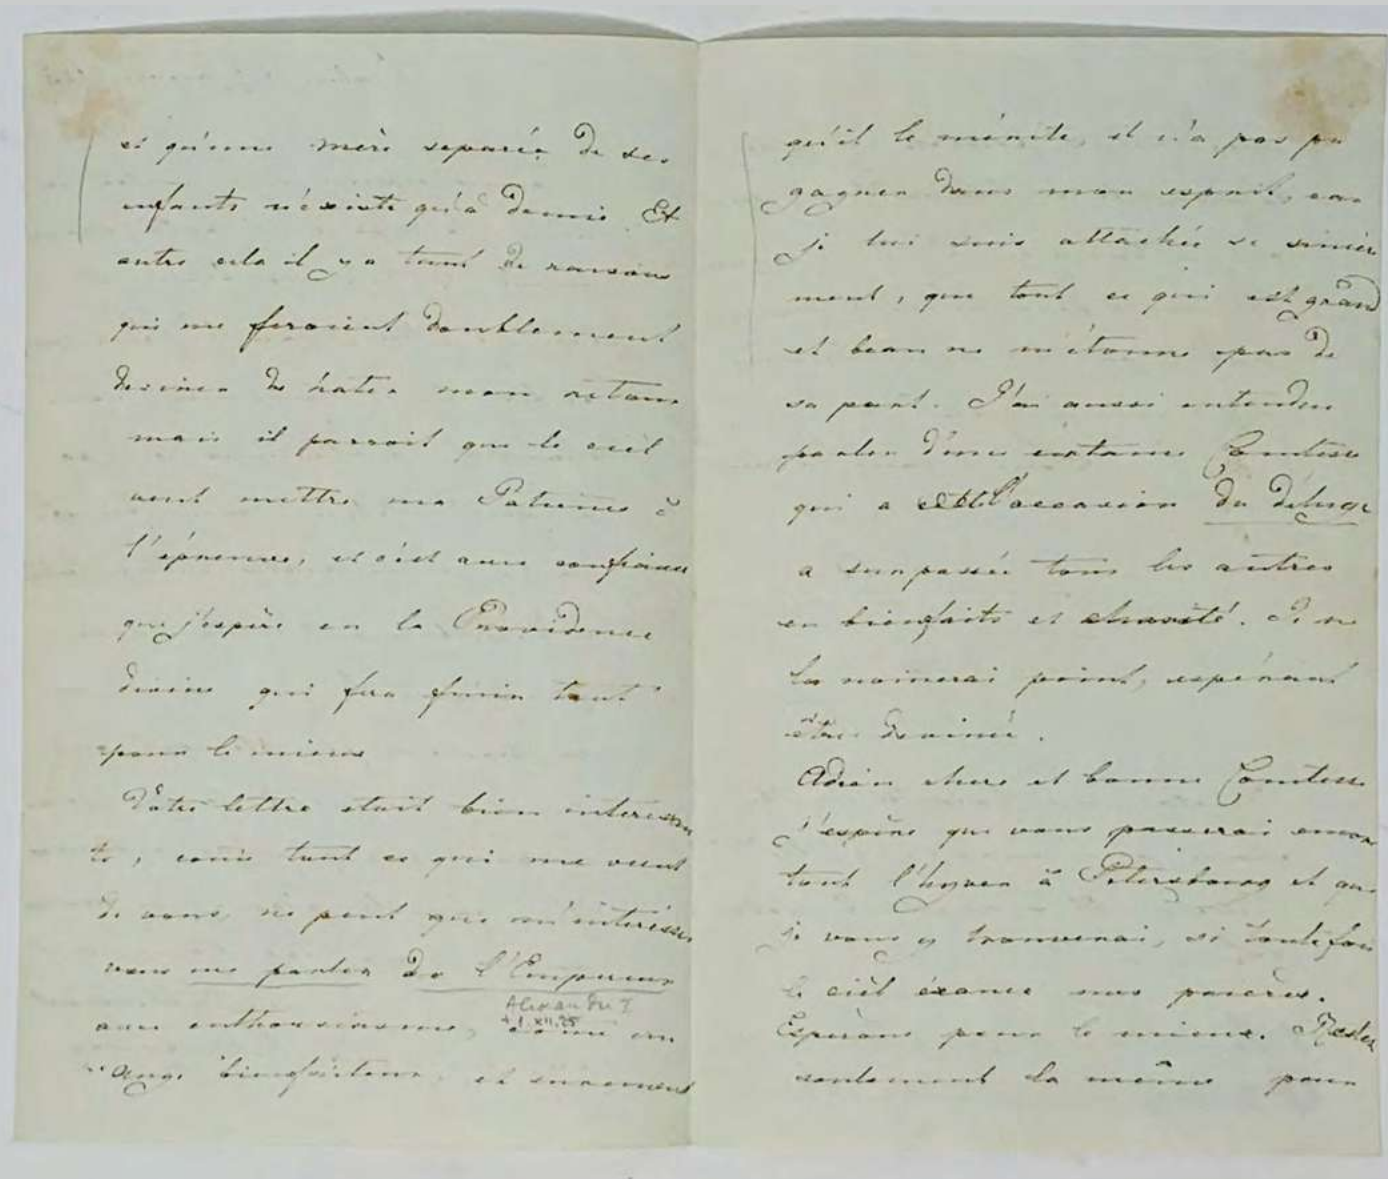 et qu'une mère separée de ses
enfants n'existe qu'à demie. Et
outre cela il y a tant de raisons
qui me feroient doublement
desirer de hater mon retour
mais il parroit que le ciel
veut mettre ma Patience à
l'épreuve, et c'est avec confiance
que j'espère en la Providence
divine qui fera finir tout
pour le mieux
Vôtre lettre etoit bien interessan
te, comme tout ce qui me vient
de vous, ne peut que m'intéresser
vous me parlez De l'Empereur
Alexandre I
† 1.XII.25
avec enthousiasme, comme un
Ange bienfaiteur, et surement
qu'il le mérite, il n'a pas pu
gagner dans mon esprit, car
je lui suis attachée si sincère
ment, que tout ce qui est grand
et beau ne m'étonne pas de
sa part. J'ai aussi entendu
parler d'une certaine Comtesse
qui a l'occasion du déluge
a surpassée tous les autres
en bienfaits et charité. Je ne
la nomerai point, espérant
être devinée.
Adieu chere et bonne Comtesse
j'espère que vous passerai encore
tout l'hyver à Petersbourg et que
je vous y trouverai, si toutefois
le ciel éxauce mes prières.
Espérons pour le mieux. Restez
seulement la même pour